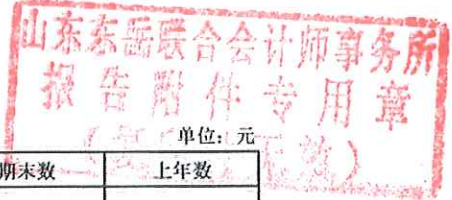 山东东岳联合会计师事务所
报告附件专用章
单位：元
期末数 上年数